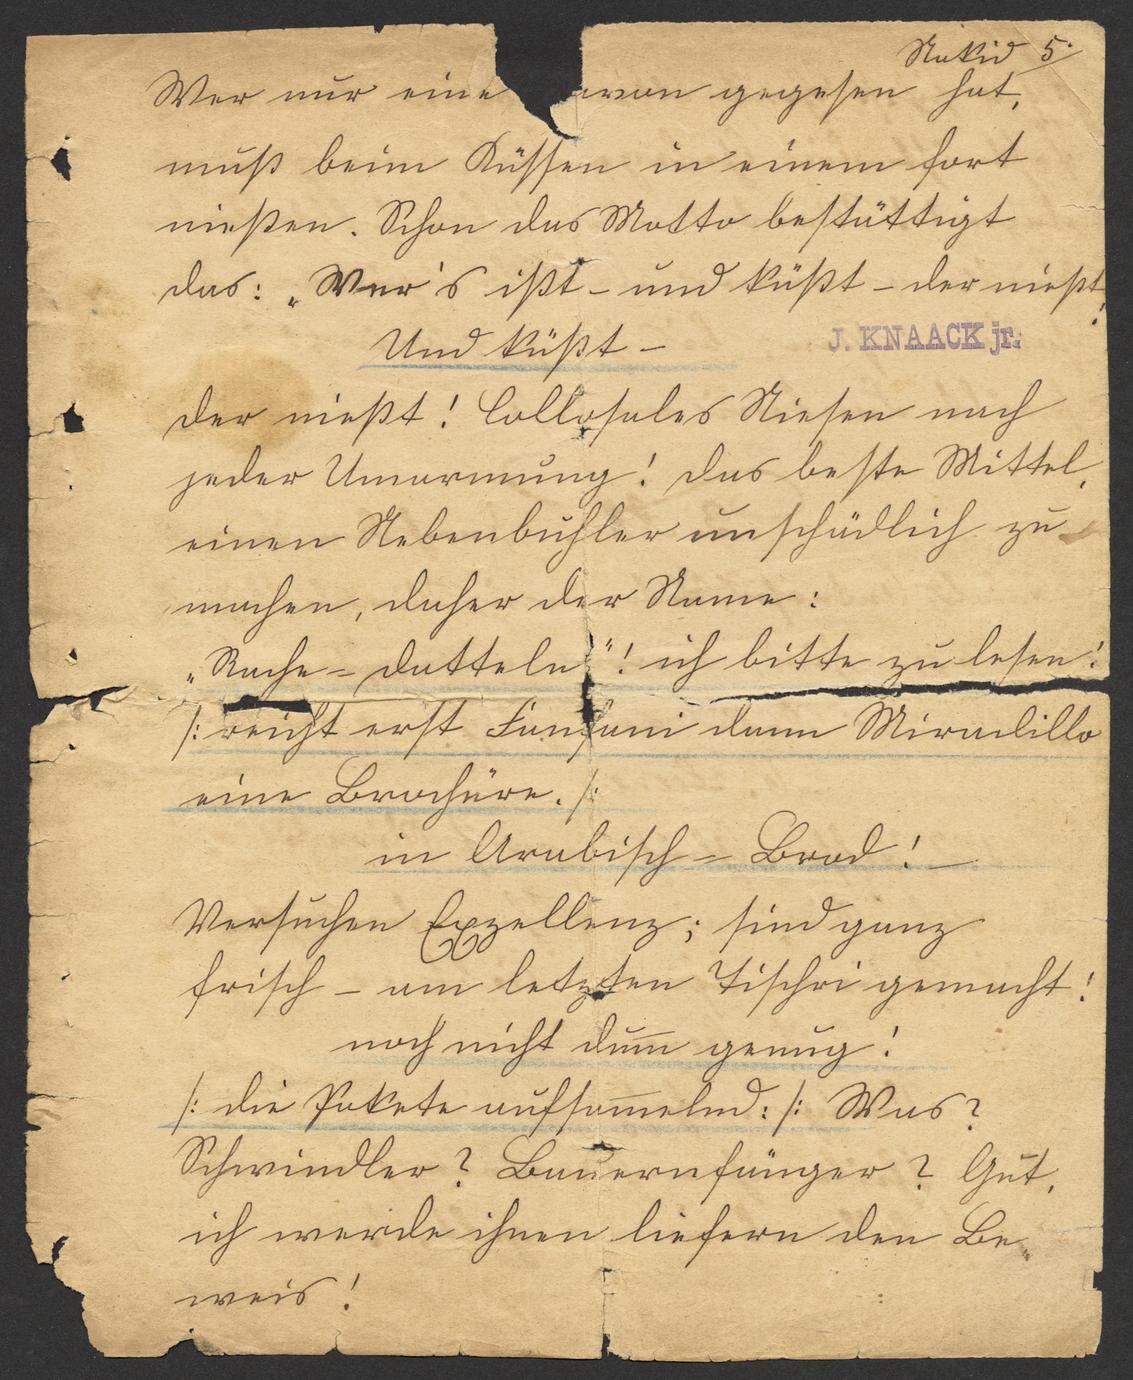 Nakid 5.
Wer nur eine avon gegesen hat,
muß beim Küssen in einem fort
nießen. Schon das Motto bestättigt
das: „Wer's ißt - und küßt - der nießt!
Und küßt -
J. KNAACK jr.
der nießt! Collosales Niesen nach
jeder Umarmung! das beste Mittel,
einen Nebenbuhler unschädlich zu
machen, daher der Name:
„Rache - Datteln"! ich bitte zu lesen!
/: reicht erst Fanfani dann Miradillo
eine Brochüre. /:
in Arabisch - Brod! -
Versuchen Exzellenz; sind ganz
frisch - am letzten Tischri gemacht!
noch nicht dum̅ genug!
/: die Pakete aufsam̅elnd: /: Was?
Schwindler? Bauernfänger? Gut,
ich werde ihnen liefern den Be„
weis!